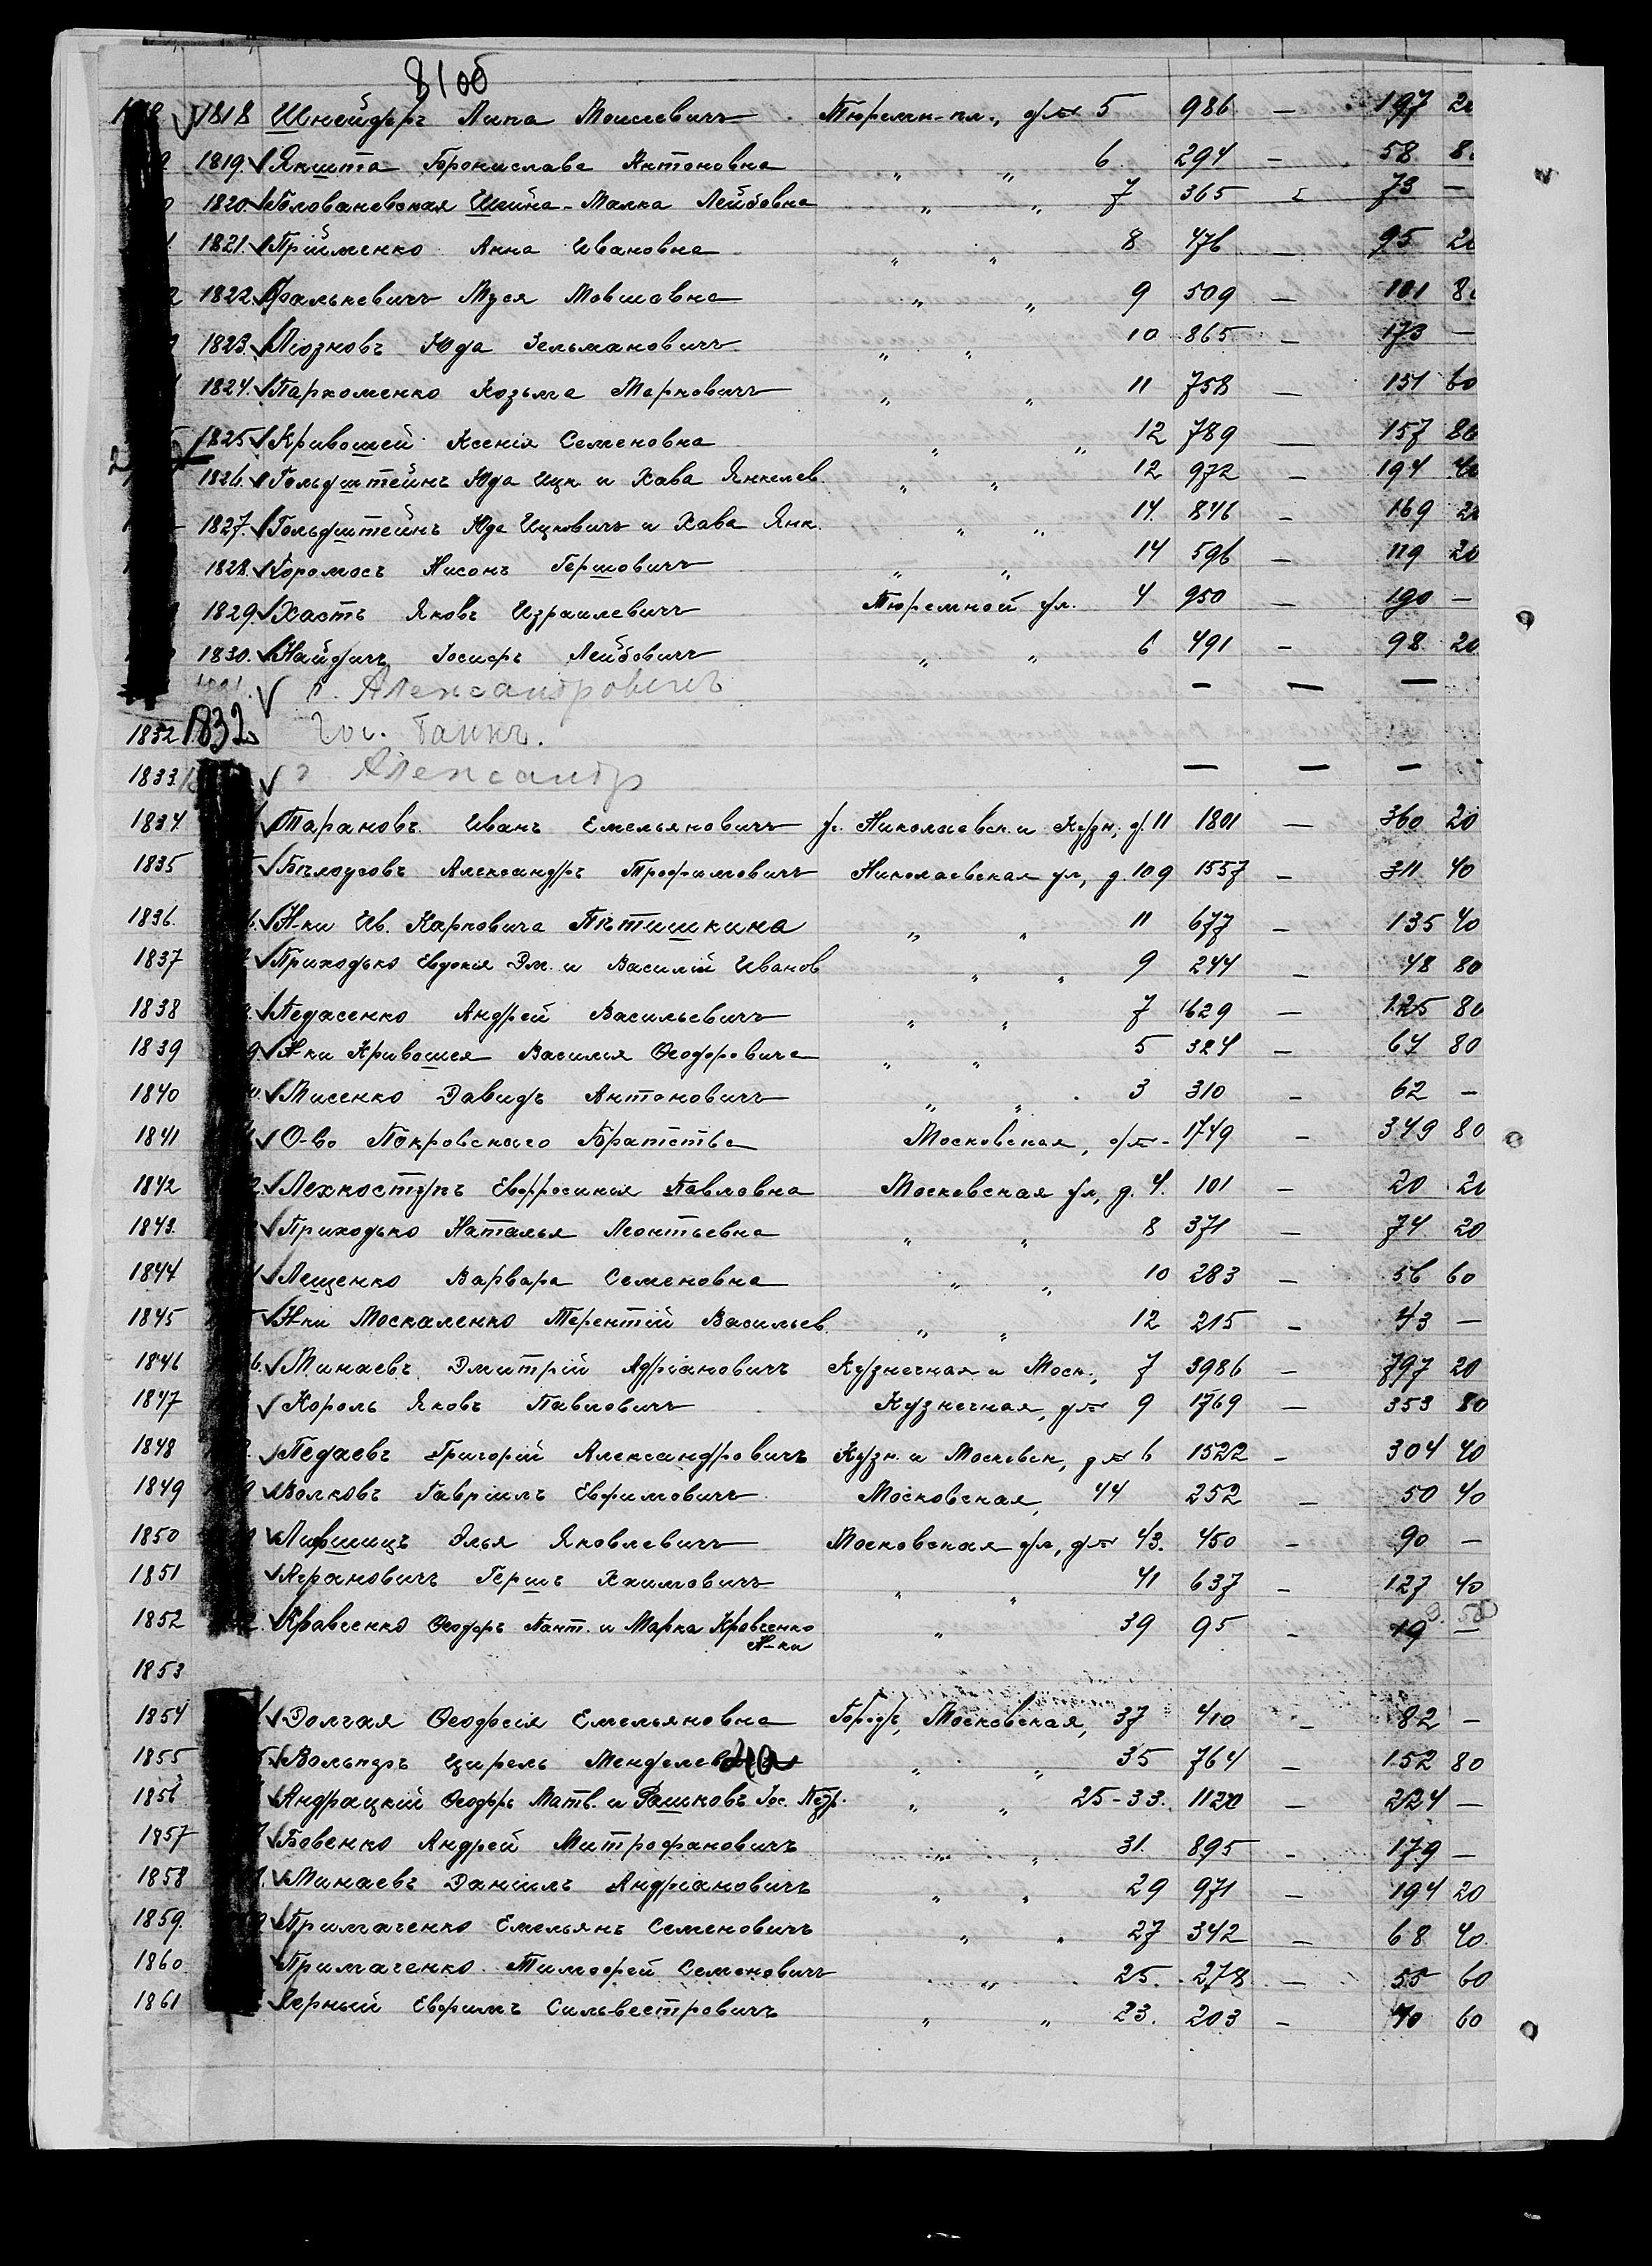 81об
1818 Шнейдеръ Липа Моисеевичъ Тюремн. пл., д № 5 986 — 197 20
1819. Якшта Брониславa Антоновна „ „ 6 294 — 58 8
1820. Голованевская Шейна-Малка Лейбовна „ „ 7 365 — 73 —
1821. Прійменко Анна Ивановна „ „ 8 476 — 95 20
1822. Фалькевичъ Муся Мовшовна „ „ 9 509 — 101 80
1823. Люзновъ Юда Зельмановичъ „ „ 10 865 — 173 —
1824. Пархоменко Козьма Марковичъ „ „ 11 758 — 151 60
1825 Кривошей Ксенія Семеновна „ „ 12 789 — 157 80
1826. Гольдштейнъ Юда Ицк. и Хава Янкелев. „ „ 12 972 — 194 40
1827. Гольдштейнъ Юда Ицковичъ и Хава Янк. „ „ 14. 846 — 169 20
1828. Хоромосъ Нисонъ Гершовичъ „ „ 14 596 — 119 20
1829. Хастъ Яковъ Израилевичъ Тюремной ул. 4 950 — 190 —
1830. Найдичъ Іосифъ Лейбовичъ „ „ 6 491 — 98 20
г. Александровичъ — — —
1832 1832 Гос. Банкъ.
1833. г. Александр — — —
1834 Тарановъ Иванъ Емельяновичъ у. Николаевск. и Кузн., д. 11 1801 — 360 20
1835 Бѣлоусовъ Александръ Трофимовичъ Николаевская ул, д. 109 1557 — 311 40
1836. Н-ки Ив. Карповича Пѣтишкина „ „ 11 677 — 135 40
1837 Приходько Евдокія Дм. и Василій Иванов „ „ 9 244 — 48 80
1838 Педасенко Андрей Васильевичъ „ „ 7 629 — 125 80
1839 Н-ки Кривошея Василія Ѳеодоровича „ „ 5 324 — 64 80
1840 Мисенко Давидъ Антоновичъ „ „ 3 310 — 62 —
1841 О-во Покровскаго Братства Московская, д № - 1749 — 349 80
1842 Лехкоступъ Евфросинія Павловна Московская ул, д. 4. 101 — 20 20
1843. Приходько Наталья Леонтьевна „ „ 8 371 — 74 20
1844 Лещенко Варвара Семеновна „ „ 10 283 — 56 60
1845 Н-ки Москаленко Терентій Васильев. „ „ 12 215 — 43 —
1846 Минаевъ Дмитрій Адріановичъ Кузнечная и Моск., 7 3986 — 797 20
1847 Король Яковъ Павловичъ Кузнечная, д № 9 1769 — 353 80
1848 Педаевъ Григорій Александровичъ Кузн. и Московск, д № 6 1522 — 304 40
1849 Волковъ Гавріилъ Ефимовичъ Московская, 44 252 — 50 40
1850 Лифшицъ Элья Яковлевичъ Московская ул, д № 43. 450 — 90 —
1851 Аграновичъ Гершъ Хаимовичъ „ „ 41 637 — 127 40
1852 Кравченко Ѳеодоръ Пант. и Марка Кравченко Н-ки „ 39 95 — 19 —
1853
1854 Долгая Ѳеодосія Емельяновна Городъ, Московская, 37 410 — 82 —
1855 Вольперъ Цирель Менделевна „ „ 35 764 — 152 80
1856 Андрацкій Ѳеодоръ Матв. и Рашковъ Іос. Петр. „ „ 25-33. 1120 — 224 —
1857 Бовенко Андрей Митрофановичъ „ „ 31. 895 — 179 —
1858 Минаевъ Даніилъ Андріановичъ „ „ 29 971 — 194 20
1859. Примаченко Емельянъ Семеновичъ „ „ 27 342 — 68 40.
1860 Примаченко Тимофей Семеновичъ „ 25. 278 — 55 60
1861 Черный Ефимъ Сильвестровичъ „ „ 23. 203 — 40 60